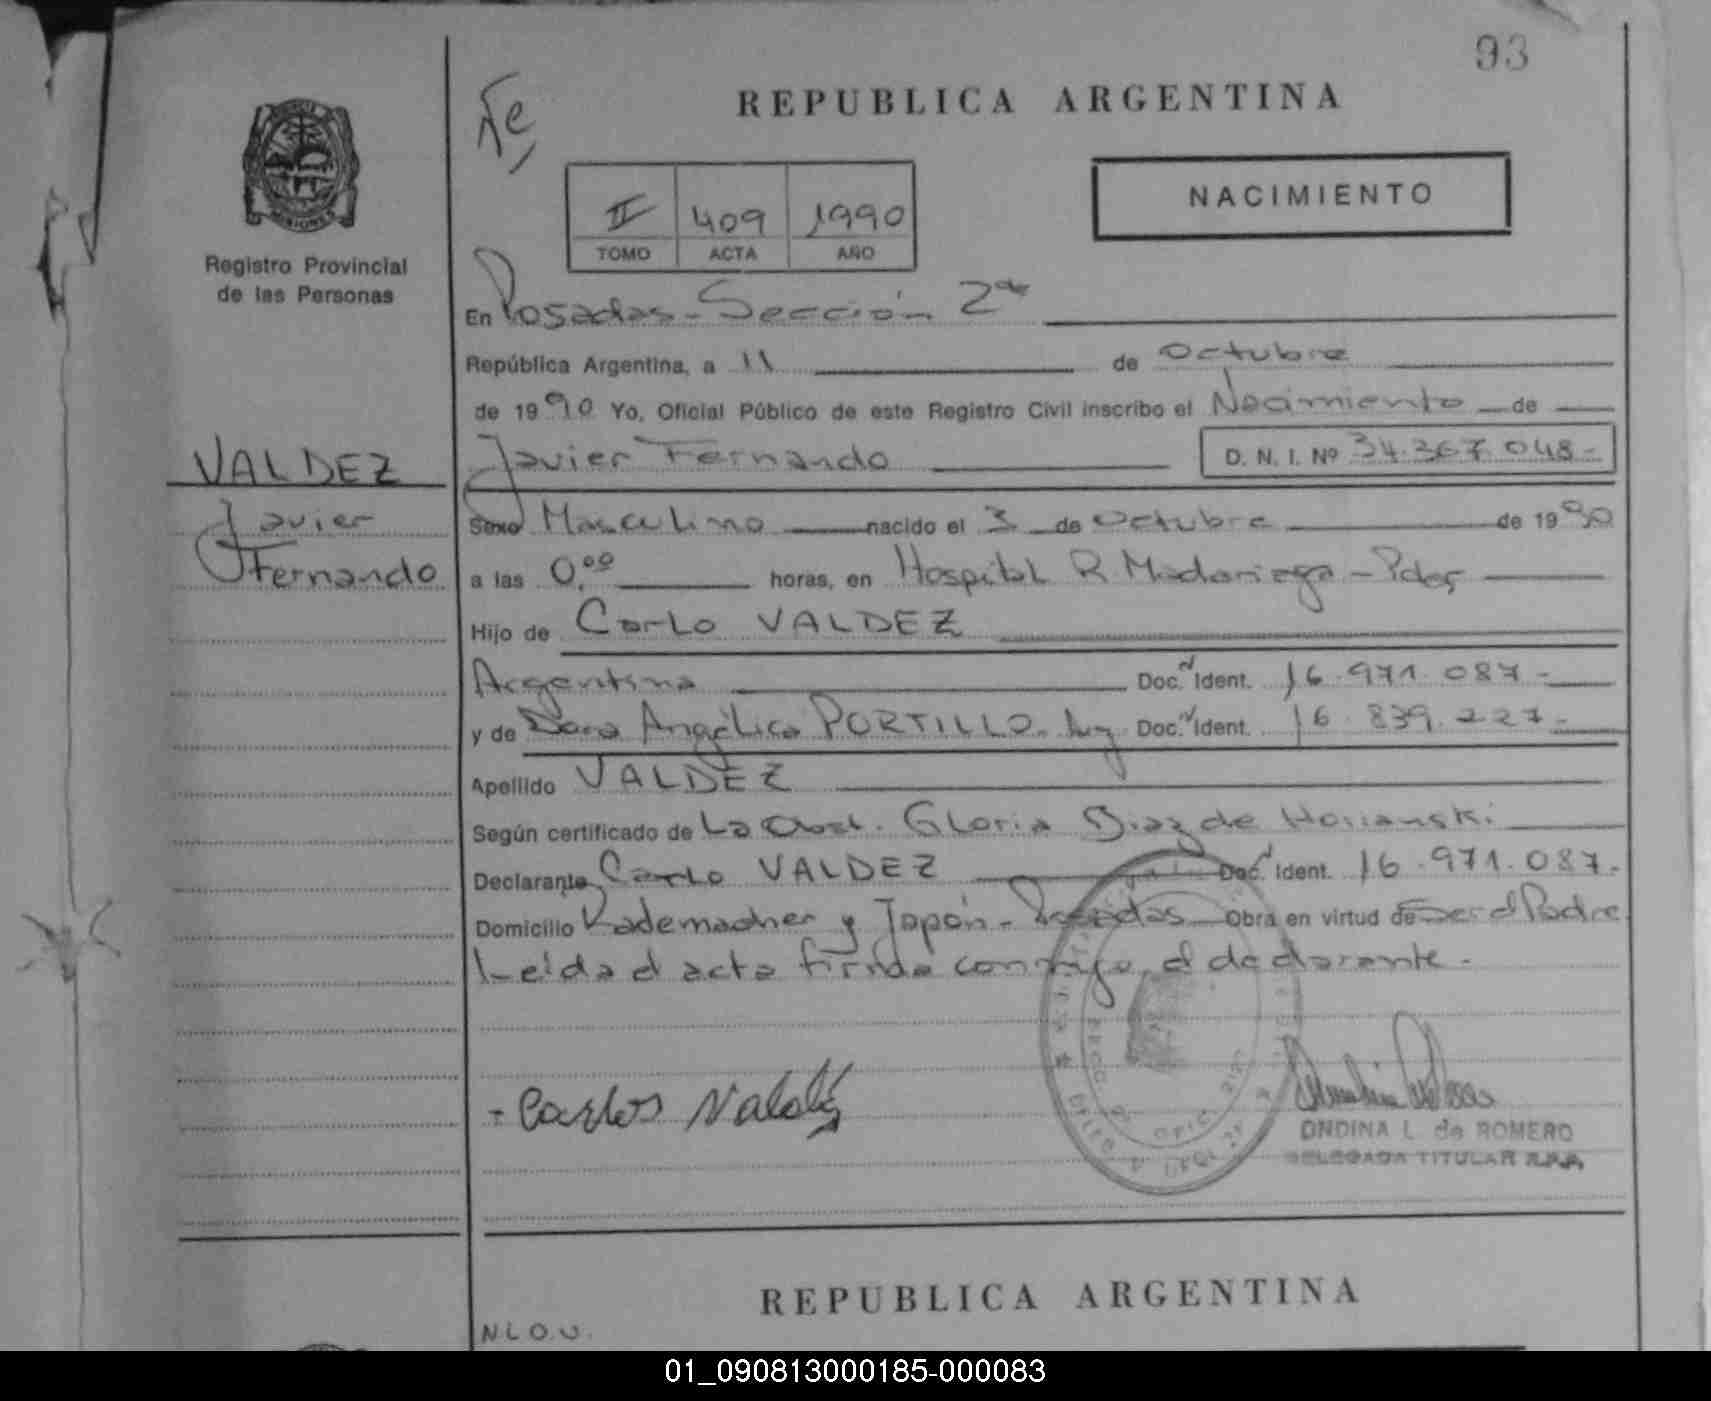 93
REPUBLICA ARGENTINA
II 409 1990
TOMO ACTA AÑO
NACIMIENTO
Registro Provincial
de las Personas
En Posadas - Sección 2da
República Argentina, a 11 de Octubre
de 1990 Yo, Oficial Público de este Registro Civil inscribo el Nacimiento de
VALDEZ
Javier Fernando
D. N. I. Nº 34.367.048-
Javier
Fernando
Sexo Masculino nacido el 3 de Octubre de 1990
a las 0,00 horas, en Hospital R Madariaga - Pdas
Hijo de Carlo VALDEZ
Argentina Doc. Ident. 16.971.087-
y de Angélica PORTILLO. Arg Doc. Ident. 16.839.227-
Apellido VALDEZ
Según certificado de La Obst. Gloria Diaz de
Declarante Carlo VALDEZ Doc. Ident. 16.971.087-
Domicilio Rademacher y Japón - Posadas Obra en virtud de Ser el Padre
Leída el acta firmda conmigo, el declarante-
Carlos Valdez
ONDINA L. de ROMERO
DELEGADA TITULAR R.P.P.
REPUBLICA ARGENTINA
N.L.O.U.
01_090813000185-000083